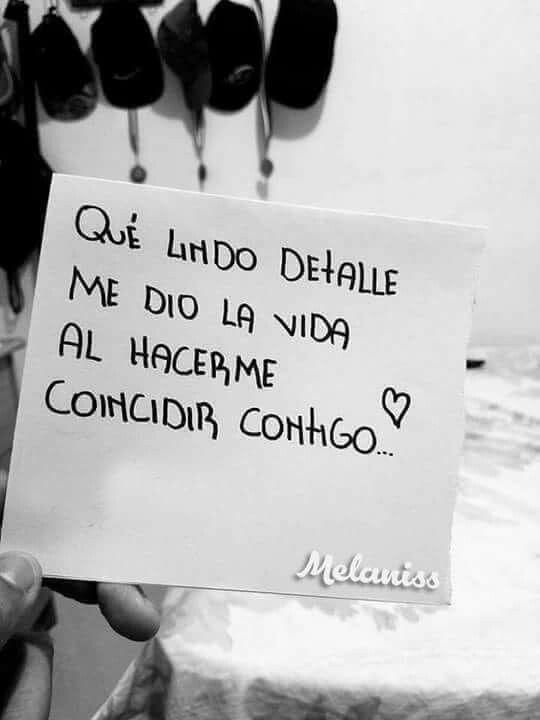 QUÉ LINDO DETALLE
ME DIO LA VIDA
AL HACERME
COINCIDIR CONTIGO...
Melaniss